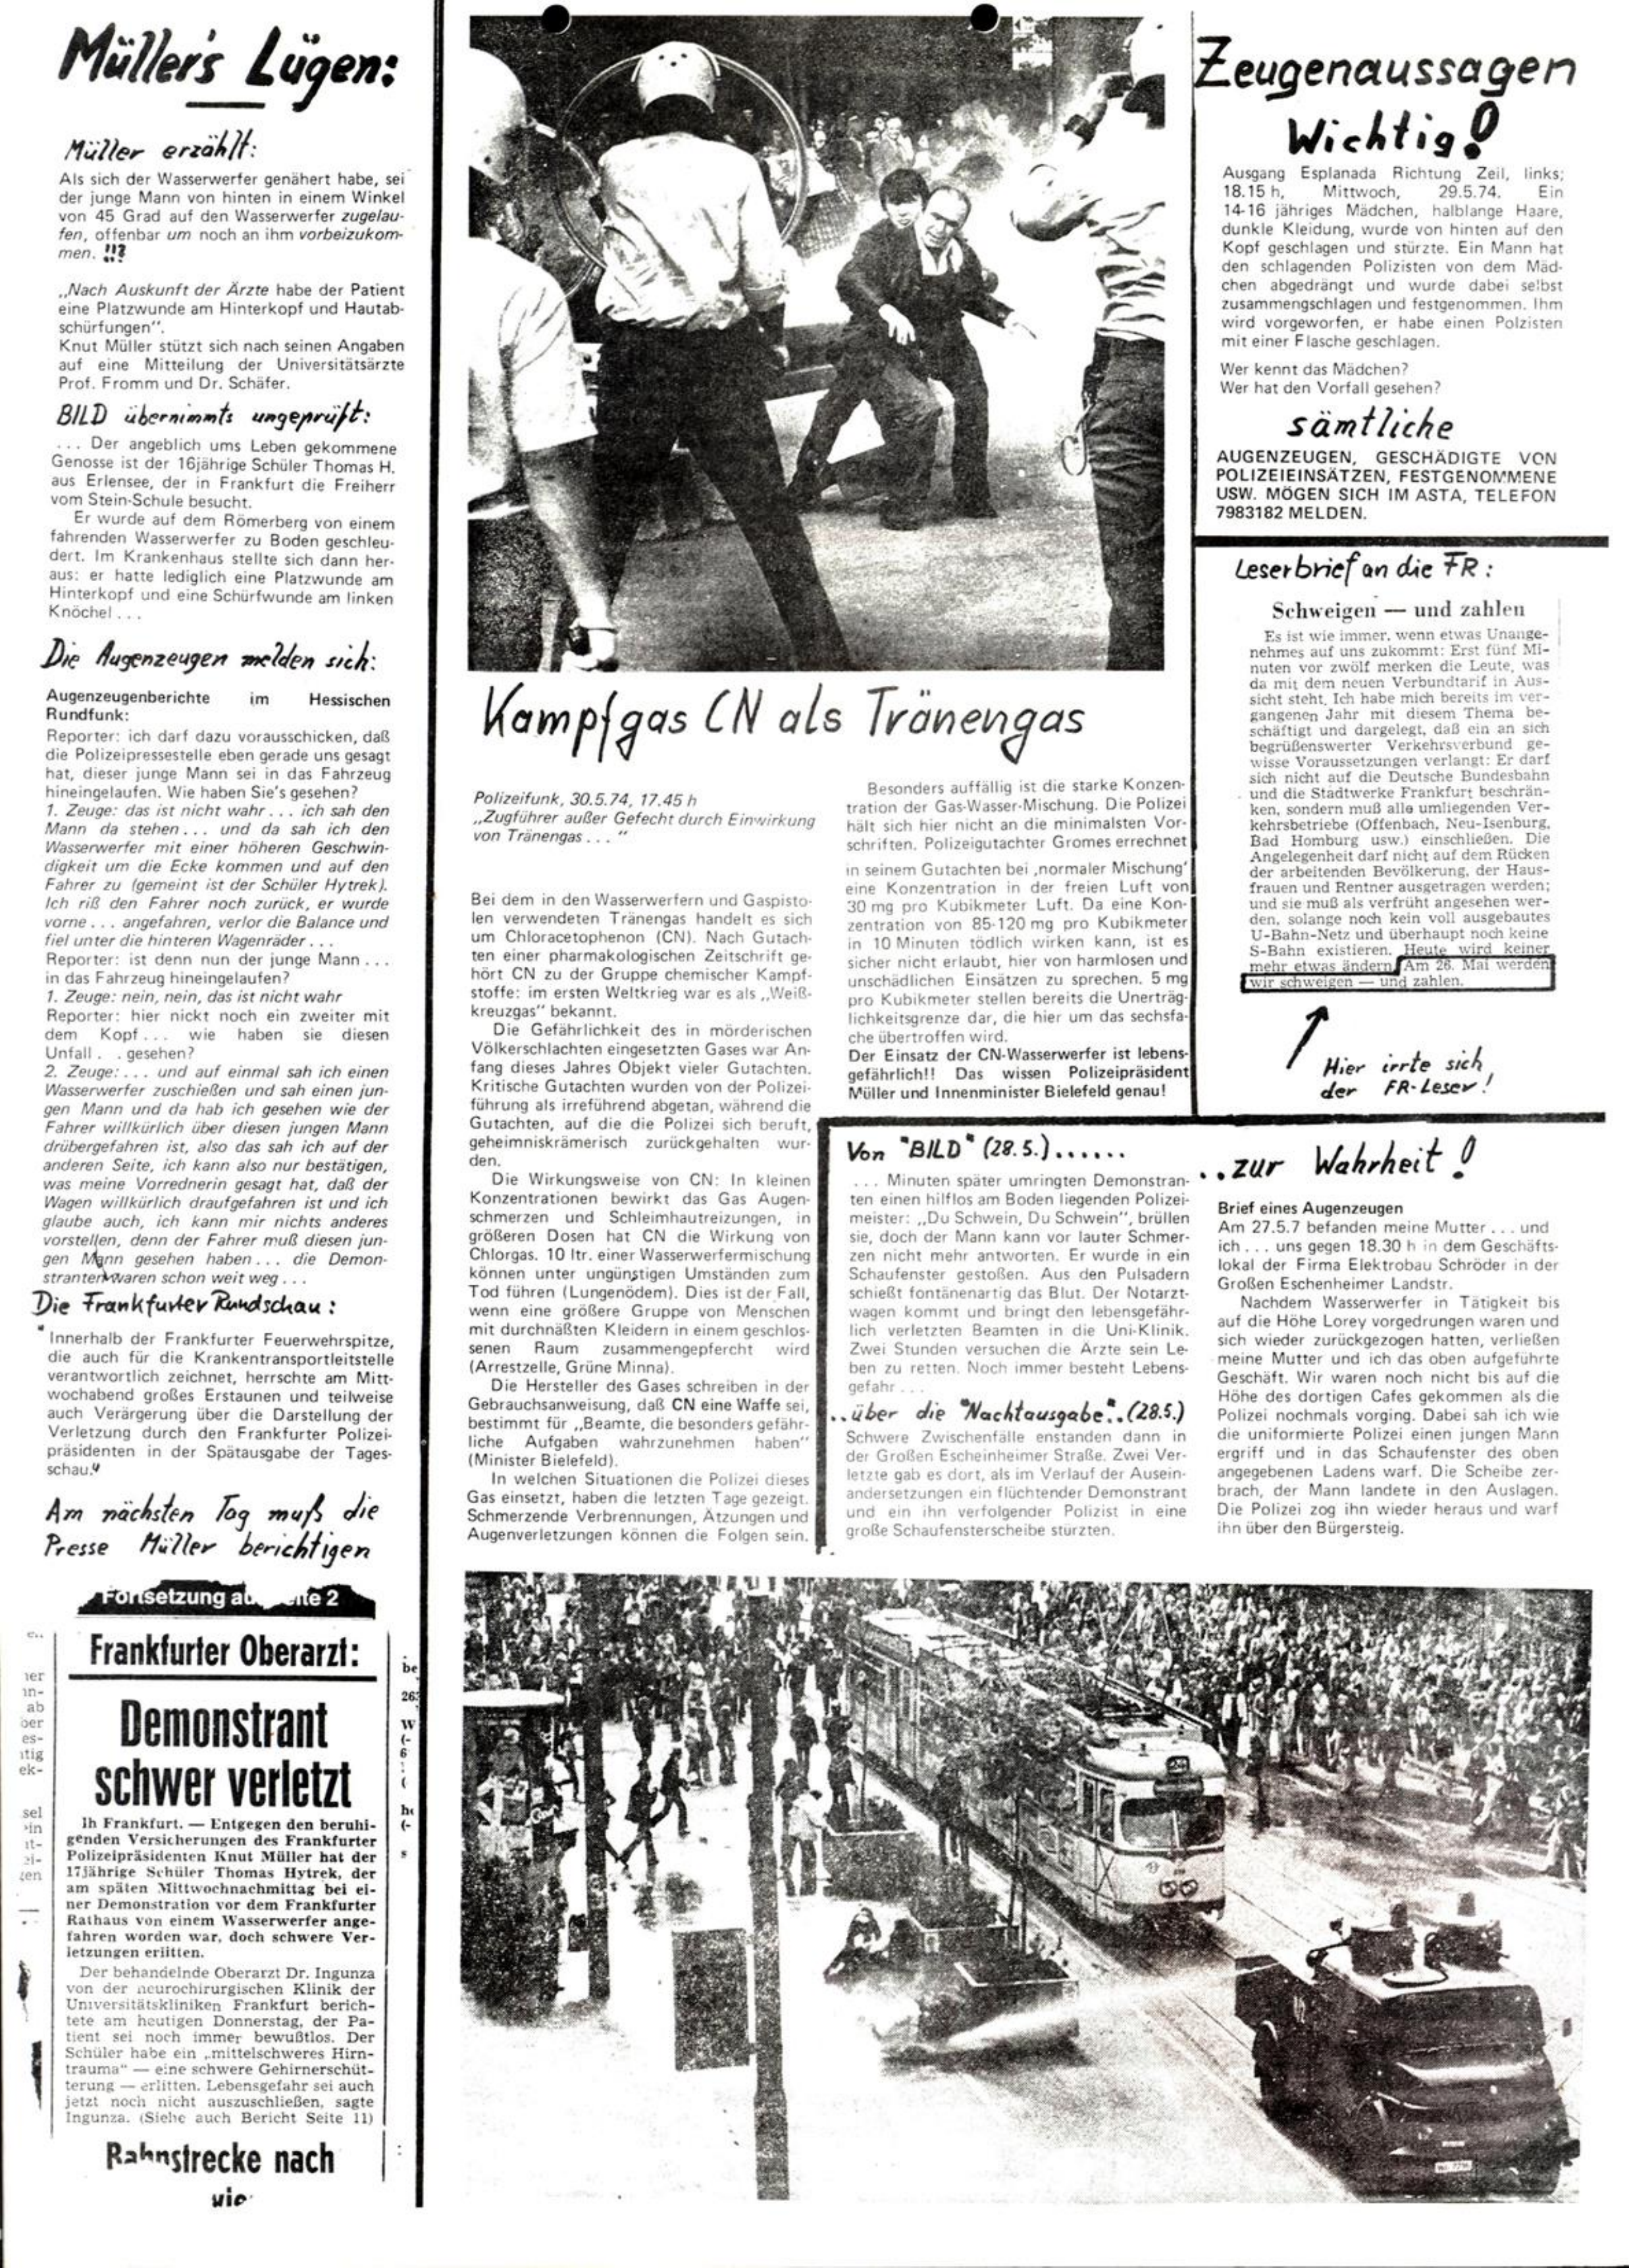 Müller's Lügen:
Müller erzählt:
Als sich der Wasserwerfer genähert habe, sei
der junge Mann von hinten in einem Winkel
von 45 Grad auf den Wasserwerfer zugelau-
fen, offenbar um noch an ihm vorbeizukom-
men. !!?
„Nach Auskunft der Ärzte habe der Patient
eine Platzwunde am Hinterkopf und Hautab-
schürfungen".
Knut Müller stützt sich nach seinen Angaben
auf eine Mitteilung der Universitätsärzte
Prof. Fromm und Dr. Schäfer.
BILD übernimmts ungeprüft:
... Der angeblich ums Leben gekommene
Genosse ist der 16jährige Schüler Thomas H.
aus Erlensee, der in Frankfurt die Freiherr
vom Stein-Schule besucht.
Er wurde auf dem Römerberg von einem
fahrenden Wasserwerfer zu Boden geschleu-
dert. Im Krankenhaus stellte sich dann her-
aus: er hatte lediglich eine Platzwunde am
Hinterkopf und eine Schürfwunde am linken
Knöchel ...
Die Augenzeugen melden sich:
Augenzeugenberichte im Hessischen
Rundfunk:
Reporter: ich darf dazu vorausschicken, daß
die Polizeipressestelle eben gerade uns gesagt
hat, dieser junge Mann sei in das Fahrzeug
hineingelaufen. Wie haben Sie's gesehen?
1. Zeuge: das ist nicht wahr ... ich sah den
Mann da stehen ... und da sah ich den
Wasserwerfer mit einer höheren Geschwin-
digkeit um die Ecke kommen und auf den
Fahrer zu (gemeint ist der Schüler Hytrek).
Ich riß den Fahrer noch zurück, er wurde
vorne ... angefahren, verlor die Balance und
fiel unter die hinteren Wagenräder ...
Reporter: ist denn nun der junge Mann ...
in das Fahrzeug hineingelaufen?
1. Zeuge: nein, nein, das ist nicht wahr
Reporter: hier nickt noch ein zweiter mit
dem Kopf ... wie haben sie diesen
Unfall . . gesehen?
2. Zeuge: ... und auf einmal sah ich einen
Wasserwerfer zuschießen und sah einen jun-
gen Mann und da hab ich gesehen wie der
Fahrer willkürlich über diesen jungen Mann
drübergefahren ist, also das sah ich auf der
anderen Seite, ich kann also nur bestätigen,
was meine Vorrednerin gesagt hat, daß der
Wagen willkürlich draufgefahren ist und ich
glaube auch, ich kann mir nichts anderes
vorstellen, denn der Fahrer muß diesen jun-
gen Mann gesehen haben ... die Demon-
stranten waren schon weit weg ...
Die Frankfurter Rundschau:
"Innerhalb der Frankfurter Feuerwehrspitze,
die auch für die Krankentransportleitstelle
verantwortlich zeichnet, herrschte am Mitt-
wochabend großes Erstaunen und teilweise
auch Verärgerung über die Darstellung der
Verletzung durch den Frankfurter Polizei-
präsidenten in der Spätausgabe der Tages-
schau."
Am nächsten Tag muß die
Presse Müller berichtigen
Fortsetzung au ite 2
Frankfurter Oberarzt:
Demonstrant
schwer verletzt
Ih Frankfurt. — Entgegen den beruhi-
genden Versicherungen des Frankfurter
Polizeipräsidenten Knut Müller hat der
17jährige Schüler Thomas Hytrek, der
am späten Mittwochnachmittag bei ei-
ner Demonstration vor dem Frankfurter
Rathaus von einem Wasserwerfer ange-
fahren worden war, doch schwere Ver-
letzungen erlitten.
Der behandelnde Oberarzt Dr. Ingunza
von der neurochirurgischen Klinik der
Universitätskliniken Frankfurt berich-
tete am heutigen Donnerstag, der Pa-
tient sei noch immer bewußtlos. Der
Schüler habe ein „mittelschweres Hirn-
trauma" — eine schwere Gehirnerschüt-
terung — erlitten. Lebensgefahr sei auch
jetzt noch nicht auszuschließen, sagte
Ingunza. (Siehe auch Bericht Seite 11)
Bahnstrecke nach
Kampfgas CN als Tränengas
Polizeifunk, 30.5.74, 17.45 h
„Zugführer außer Gefecht durch Einwirkung
von Tränengas ... "
Bei dem in den Wasserwerfern und Gaspisto-
len verwendeten Tränengas handelt es sich
um Chloracetophenon (CN). Nach Gutach-
ten einer pharmakologischen Zeitschrift ge-
hört CN zu der Gruppe chemischer Kampf-
stoffe: im ersten Weltkrieg war es als „Weiß-
kreuzgas" bekannt.
Die Gefährlichkeit des in mörderischen
Völkerschlachten eingesetzten Gases war An-
fang dieses Jahres Objekt vieler Gutachten.
Kritische Gutachten wurden von der Polizei-
führung als irreführend abgetan, während die
Gutachten, auf die die Polizei sich beruft,
geheimniskrämerisch zurückgehalten wur-
den.
Die Wirkungsweise von CN: In kleinen
Konzentrationen bewirkt das Gas Augen-
schmerzen und Schleimhautreizungen, in
größeren Dosen hat CN die Wirkung von
Chlorgas. 10 ltr. einer Wasserwerfermischung
können unter ungünstigen Umständen zum
Tod führen (Lungenödem). Dies ist der Fall,
wenn eine größere Gruppe von Menschen
mit durchnäßten Kleidern in einem geschlos-
senen Raum zusammengepfercht wird
(Arrestzelle, Grüne Minna).
Die Hersteller des Gases schreiben in der
Gebrauchsanweisung, daß CN eine Waffe sei,
bestimmt für „Beamte, die besonders gefähr-
liche Aufgaben wahrzunehmen haben"
(Minister Bielefeld).
In welchen Situationen die Polizei dieses
Gas einsetzt, haben die letzten Tage gezeigt.
Schmerzende Verbrennungen, Ätzungen und
Augenverletzungen können die Folgen sein.
Besonders auffällig ist die starke Konzen-
tration der Gas-Wasser-Mischung. Die Polizei
hält sich hier nicht an die minimalsten Vor-
schriften. Polizeigutachter Gromes errechnet
in seinem Gutachten bei ‚normaler Mischung'
eine Konzentration in der freien Luft von
30 mg pro Kubikmeter Luft. Da eine Kon-
zentration von 85-120 mg pro Kubikmeter
in 10 Minuten tödlich wirken kann, ist es
sicher nicht erlaubt, hier von harmlosen und
unschädlichen Einsätzen zu sprechen. 5 mg
pro Kubikmeter stellen bereits die Unerträg-
lichkeitsgrenze dar, die hier um das sechsfa-
che übertroffen wird.
Der Einsatz der CN-Wasserwerfer ist lebens-
gefährlich!! Das wissen Polizeipräsident
Müller und Innenminister Bielefeld genau!
Zeugenaussagen
Wichtig!
Ausgang Esplanada Richtung Zeil, links;
18.15 h, Mittwoch, 29.5.74. Ein
14-16 jähriges Mädchen, halblange Haare,
dunkle Kleidung, wurde von hinten auf den
Kopf geschlagen und stürzte. Ein Mann hat
den schlagenden Polizisten von dem Mäd-
chen abgedrängt und wurde dabei selbst
zusammengschlagen und festgenommen. Ihm
wird vorgeworfen, er habe einen Polzisten
mit einer Flasche geschlagen.
Wer kennt das Mädchen?
Wer hat den Vorfall gesehen?
sämtliche
AUGENZEUGEN, GESCHÄDIGTE VON
POLIZEIEINSÄTZEN, FESTGENOMMENE
USW. MÖGEN SICH IM ASTA, TELEFON
7983182 MELDEN.
Leserbrief an die FR:
Schweigen — und zahlen
Es ist wie immer, wenn etwas Unange-
nehmes auf uns zukommt: Erst fünf Mi-
nuten vor zwölf merken die Leute, was
da mit dem neuen Verbundtarif in Aus-
sicht steht. Ich habe mich bereits im ver-
gangenen Jahr mit diesem Thema be-
schäftigt und dargelegt, daß ein an sich
begrüßenswerter Verkehrsverbund ge-
wisse Voraussetzungen verlangt: Er darf
sich nicht auf die Deutsche Bundesbahn
und die Stadtwerke Frankfurt beschrän-
ken, sondern muß alle umliegenden Ver-
kehrsbetriebe (Offenbach, Neu-Isenburg,
Bad Homburg usw.) einschließen. Die
Angelegenheit darf nicht auf dem Rücken
der arbeitenden Bevölkerung, der Haus-
frauen und Rentner ausgetragen werden;
und sie muß als verfrüht angesehen wer-
den, solange noch kein voll ausgebautes
U-Bahn-Netz und überhaupt noch keine
S-Bahn existieren. Heute wird keiner
mehr etwas ändern. Am 26. Mai werden
wir schweigen — und zahlen.
Hier irrte sich
der FR-Leser!
Von "BILD" (28.5.)......
... Minuten später umringten Demonstran-
ten einen hilflos am Boden liegenden Polizei-
meister: „Du Schwein, Du Schwein", brüllen
sie, doch der Mann kann vor lauter Schmer-
zen nicht mehr antworten. Er wurde in ein
Schaufenster gestoßen. Aus den Pulsadern
schießt fontänenartig das Blut. Der Notarzt-
wagen kommt und bringt den lebensgefähr-
lich verletzten Beamten in die Uni-Klinik.
Zwei Stunden versuchen die Ärzte sein Le-
ben zu retten. Noch immer besteht Lebens-
gefahr ...
..über die "Nachtausgabe"..(28.5.)
Schwere Zwischenfälle enstanden dann in
der Großen Escheinheimer Straße. Zwei Ver-
letzte gab es dort, als im Verlauf der Ausein-
andersetzungen ein flüchtender Demonstrant
und ein ihn verfolgender Polizist in eine
große Schaufensterscheibe stürzten.
..zur Wahrheit!
Brief eines Augenzeugen
Am 27.5.7 befanden meine Mutter ... und
ich ... uns gegen 18.30 h in dem Geschäfts-
lokal der Firma Elektrobau Schröder in der
Großen Eschenheimer Landstr.
Nachdem Wasserwerfer in Tätigkeit bis
auf die Höhe Lorey vorgedrungen waren und
sich wieder zurückgezogen hatten, verließen
meine Mutter und ich das oben aufgeführte
Geschäft. Wir waren noch nicht bis auf die
Höhe des dortigen Cafes gekommen als die
Polizei nochmals vorging. Dabei sah ich wie
die uniformierte Polizei einen jungen Mann
ergriff und in das Schaufenster des oben
angegebenen Ladens warf. Die Scheibe zer-
brach, der Mann landete in den Auslagen.
Die Polizei zog ihn wieder heraus und warf
ihn über den Bürgersteig.